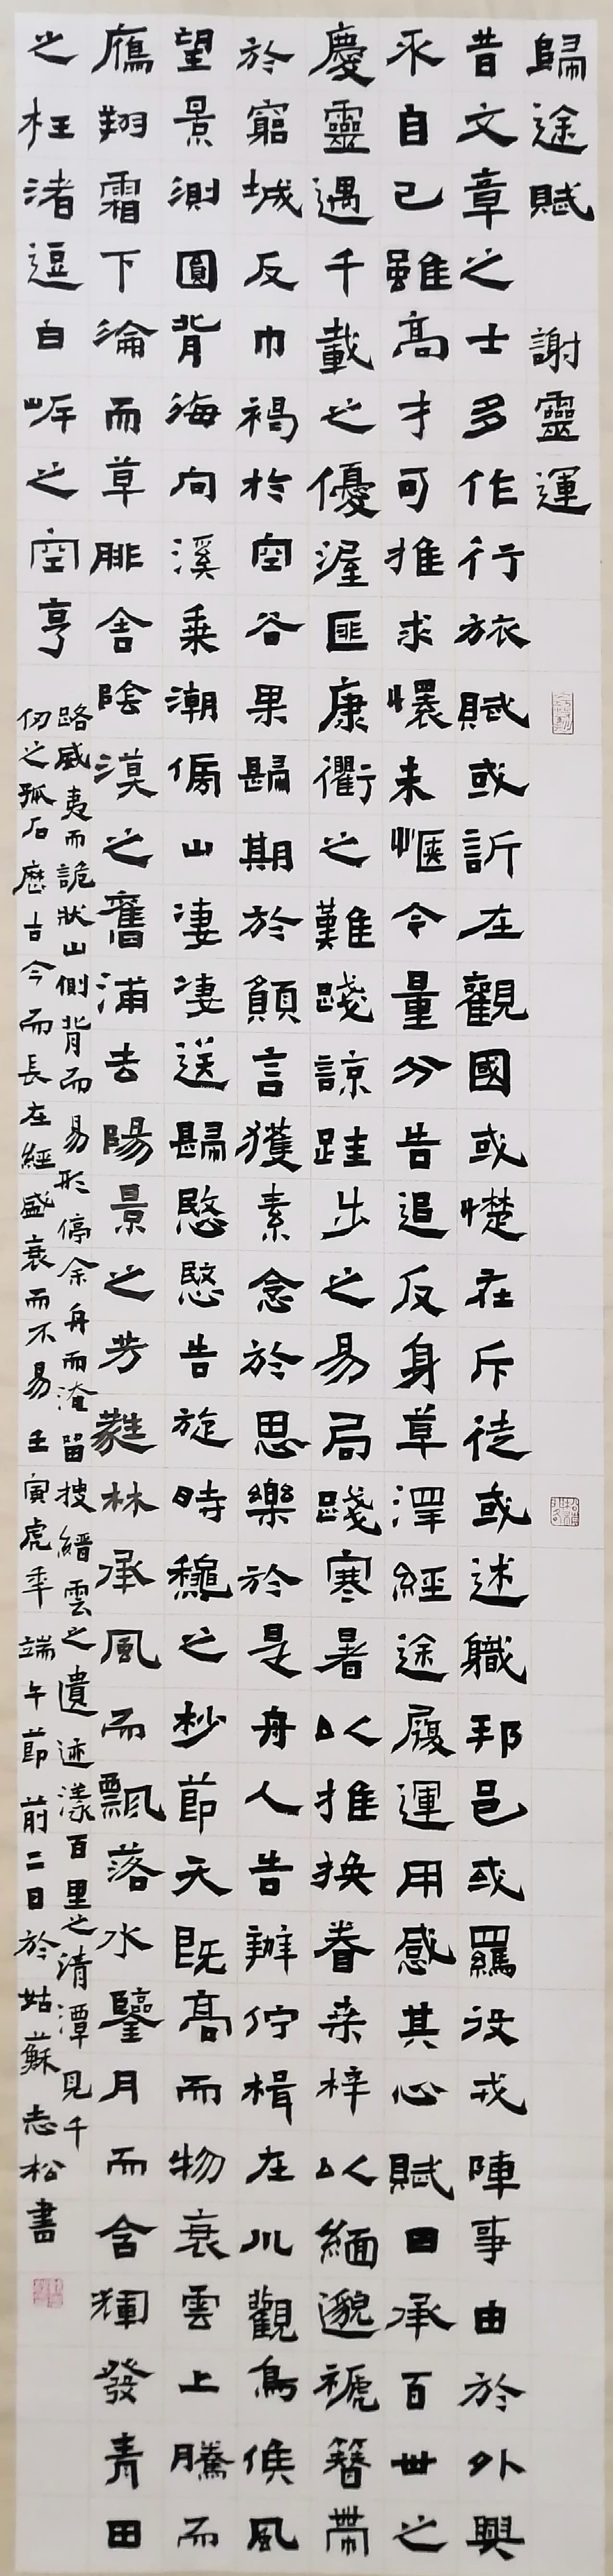 歸途賦 謝靈運
昔文章之士多作行旅賦或訢在觀國或憷在斥徒或述職邦邑或羈役戎陣事由於外興
不自己雖高才可推求懷未愜令量分告追反身草澤經途履運用感其心賦曰承百世之
慶靈遇千載之優渥匪康衢之難踐諒跬步之易局踐寒暑以推換眷桑梓以緬邈褫簪帶
於窮城反巾褐於空谷果歸期於願言獲素念於思樂於是舟人告辦佇楫在川觀鳥候風
望景測圓背海向溪乘潮傍山淒淒送歸愍愍告旋時龝之杪節天既高而物衰雲上騰而
鴈翔霜下淪而草腓舍陰漠之舊浦去陽景之芳蕤林承風而飄落水鑒月而含輝發青田
之枉渚逗白岸之空亭
路威夷而詭狀山側背而易形停余舟而淹留搜縉雲之遺迹漾百里之清潭見千
仞之孤石歷古今而長在經盛衰而不易壬寅虎年端午節前二日於姑蘇志松書